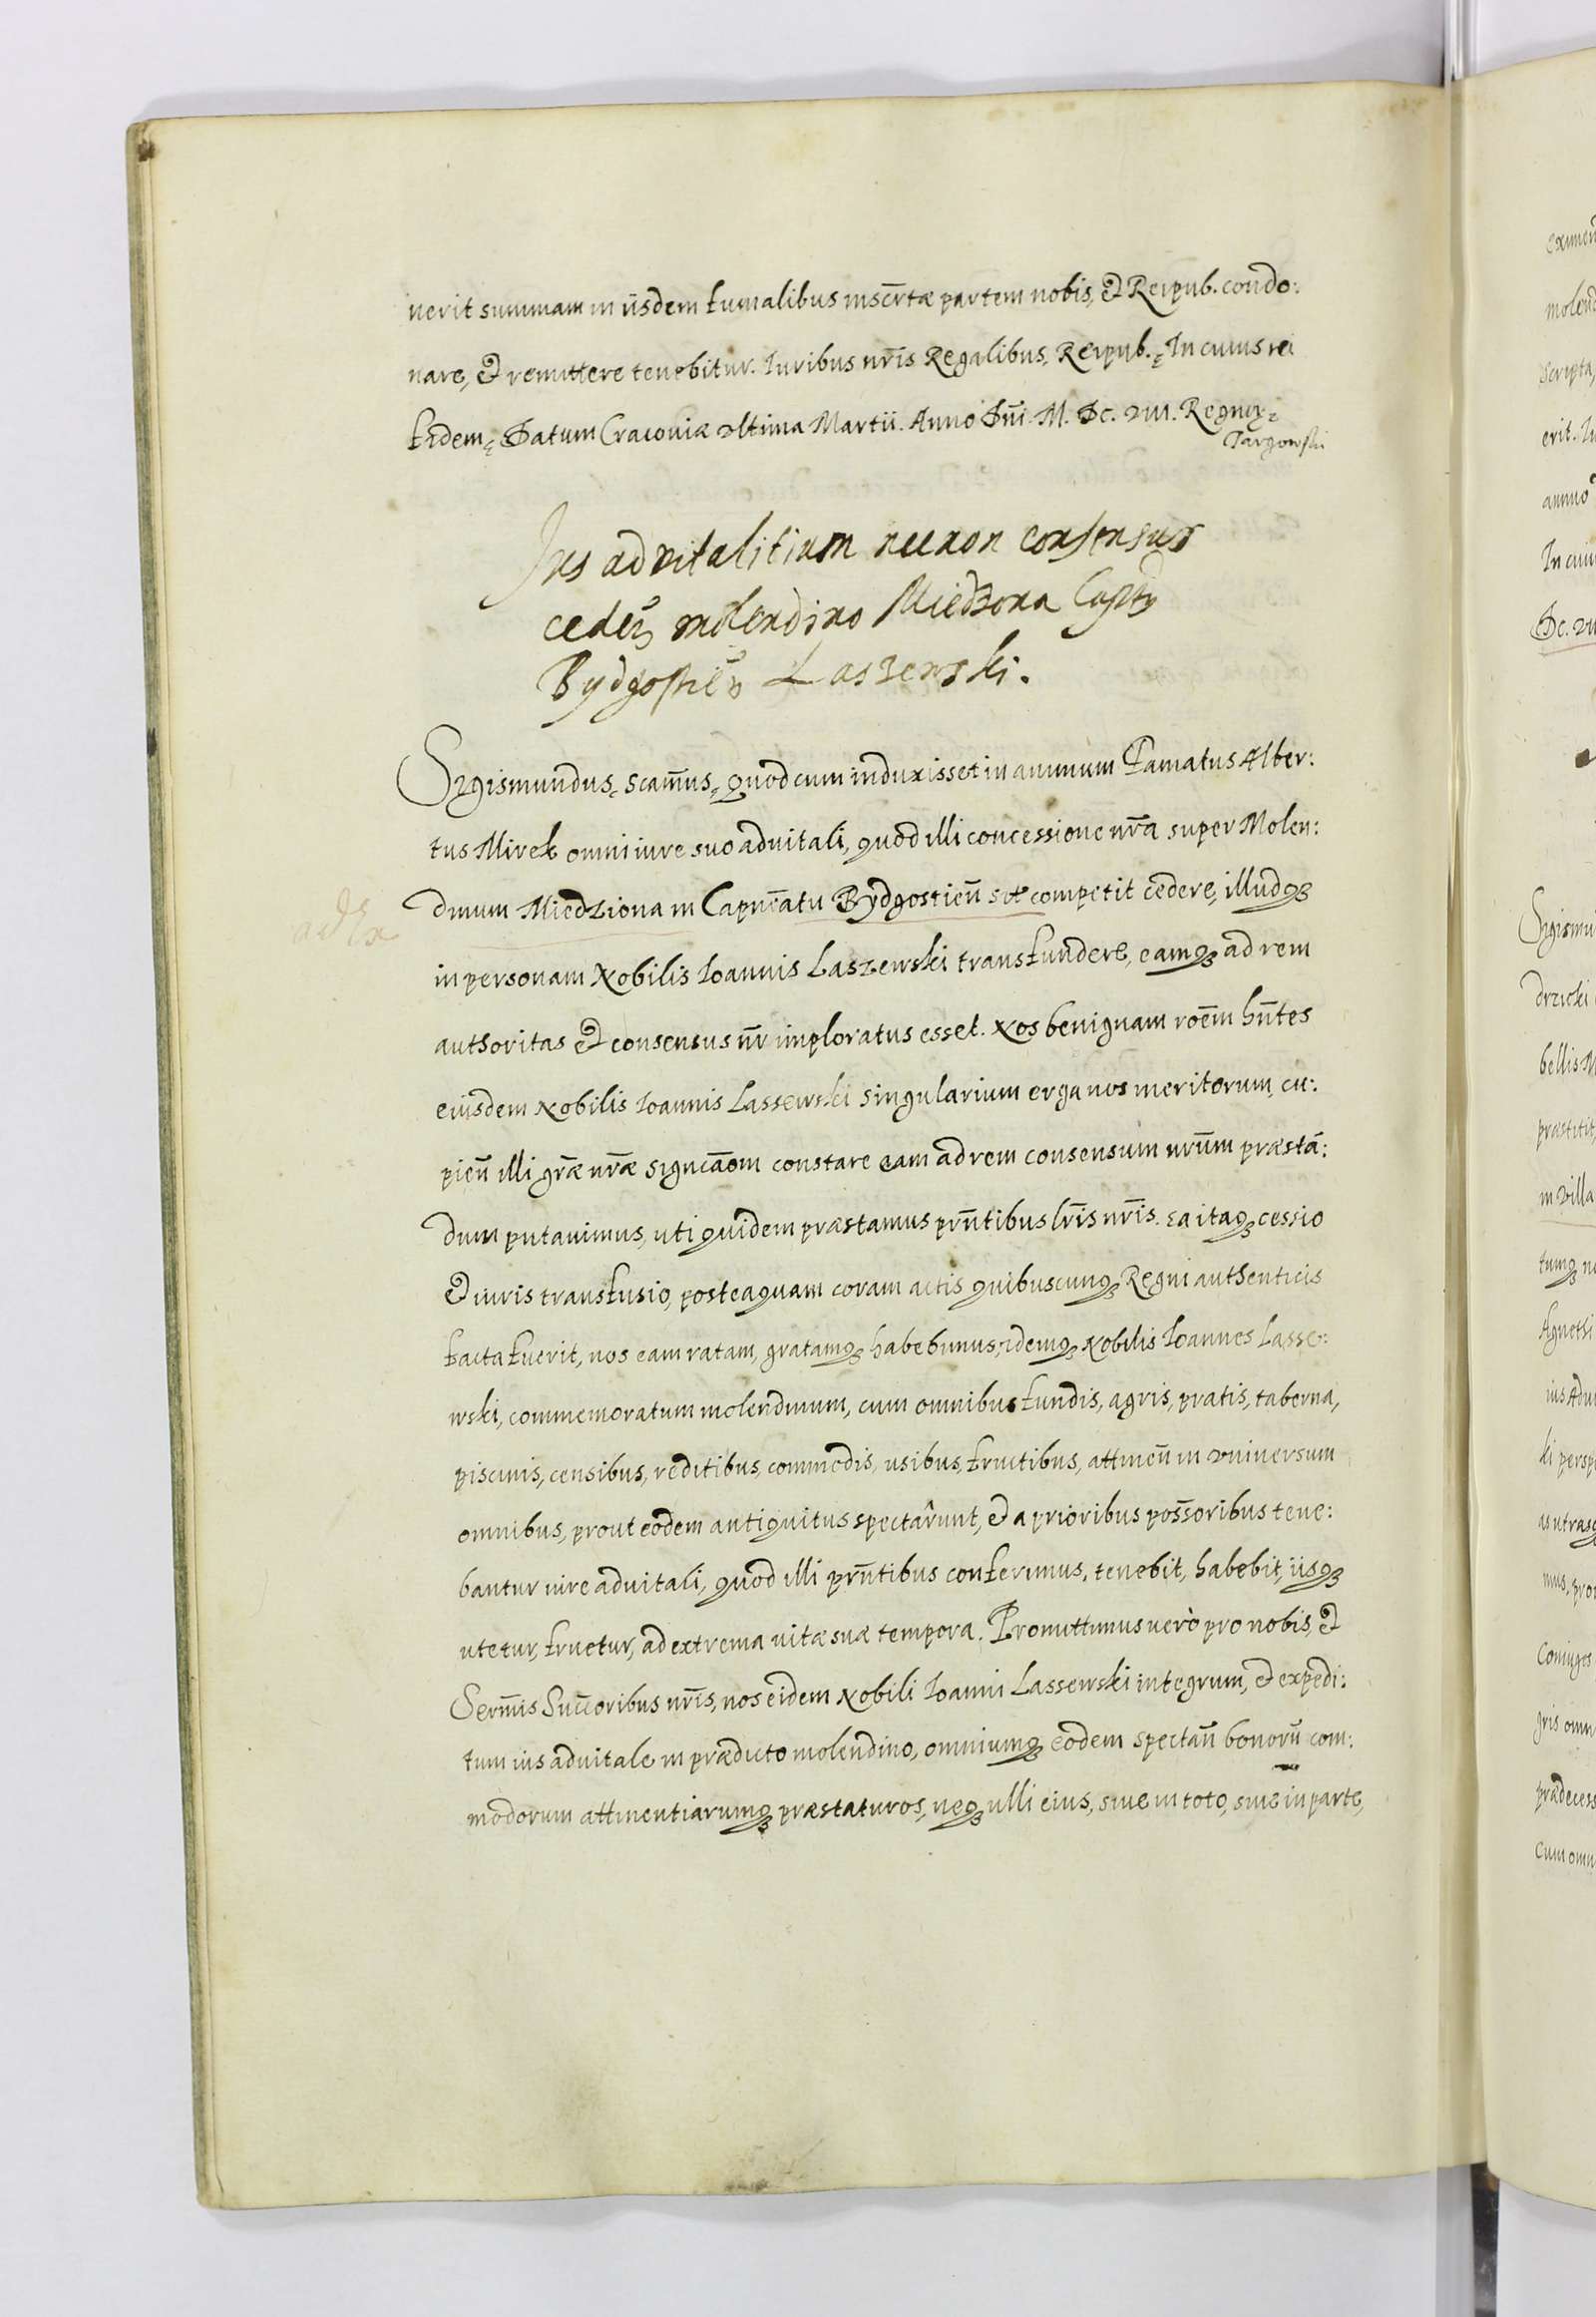 uerit summam in iisdem fumalibus inscr̄tæ partem nobis, & Reipub. condo:
nare, & remittere tenebitur. Iuribus nr̄is Regalibus, Reipub. In cuius rei
fidem, Datum Cracouiæ vltima Martii. Anno Dn̄i M. DC. VIII. Regnor
Targowski
Jus aduitalitium necnon consensus
ceden̄ molendino Miedzona Captus
Bydgostien̄ Laszewski.
Sigismundus, scam̄us, Quod cum induxisset in animum Famatus Alber:
tus Mirek omni iure suo aduitali, quod illi concessione nr̄a super Molen:
dinum Miedziona in Capn̄eatu Bydgostien̄ competit cedere, illudq3
in personam Nobilis Ioannis Laszewski transfundere, eamq3 ad rem
authoritas & consensus nr̄ imploratus esset. Nos benignam roēm hn̄tes
eiusdem Nobilis Ioannis Lassewski singularium erga nos meritorum, cu:
pien̄ illi gr̄æ nr̄æ signcāom constare eam ad rem consensum nr̄um præstā:
dum putauimus, uti quidem præstamus prn̄tibus lr̄is nr̄is. Ea itaq3 cessio
& iuris transfusio, posteaquam coram actis quibuscunq3 Regni authenticis
facta fuerit, nos eam ratam, gratamq3 habebimus, idemq3 Nobilis Ioannes Lasse:
wski, commemoratum molendinum, cum omnibus fundis, agris, pratis, taberna,
piscinis, censibus, reditibus, commodis, usibus, fructibus, attinen̄ in vniuersum
omnibus, prout eodem antiquitus spectar̂unt, & a prioribus poss̄oribus tene:
bantur iure aduitali, quod illi prn̄tibus conferimus, tenebit, habebit, iisq3
utetur, fruetur, ad extrema uitæ suæ tempora. Promittimus uerò pro nobis, &
Serm̄is Succ̄oribus nr̄is, nos eidem Nobili Ioanni Lassewski integrum, & expedi:
tum ius aduitale in prædicto molendino, omniumq3 eodem spectan̄ bonorū com:
modorum attinentiarumq3 præstaturos, neq3 ulli eius, siue in toto, siue in parte,